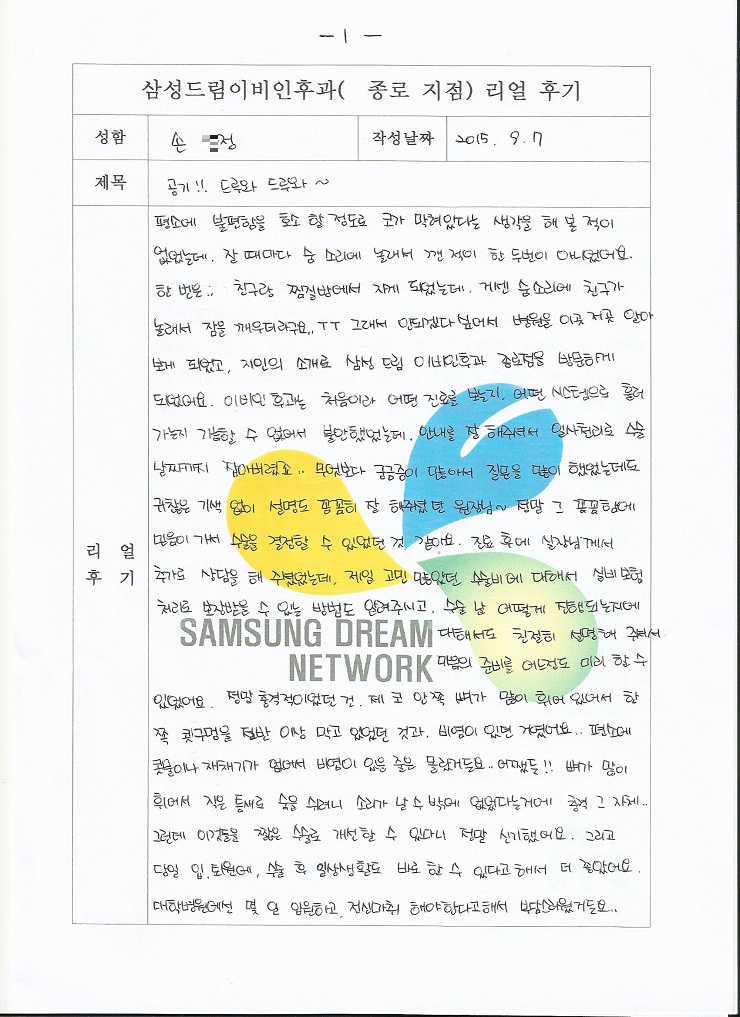 - 1 -
삼성드림이비인후과( 종로 지점) 리얼 후기
성함 손 정 작성날짜 2015. 9. 7
제목 공기!! 드루와 드루와~
리 얼
후 기
평소에 불편함을 호소 할 정도로 코가 막혀있다는 생각을 해 본 적이
없었는데, 잘 때마다 숨 소리에 놀래서 깬 적이 한 두번이 아니었어요.
한 번은.. 친구랑 찜질방에서 자게 되었는데, 거센 숨소리에 친구가
놀래서 잠을 깨우더라구요.. TT 그래서 안되겠다 싶어서 병원을 이곳 저곳 알아
보게 되었고, 지인의 소개로 삼성 드림 이비인후과 종로점을 방문하게
되었어요. 이비인후과는 처음이라 어떤 진료를 보는지, 어떤 시스템으로 흘러
가는지 가늠할 수 없어서 불안했었는데, 안내를 잘 해주셔서 일사천리로 수술
날짜까지 잡아버렸죠.. 무엇보다 궁금증이 많아서 질문을 많이 했었는데도
귀찮은 기색 없이 설명도 꼼꼼히 잘 해주셨던 원장님~ 정말 그 꼼꼼함에
믿음이 가서 수술을 결정할 수 있었던 것 같아요. 진료 후에 실장님께서
추가로 상담을 해 주셨었는데, 제일 고민 많았던 수술비에 대해서 실비보험
처리로 보장받을 수 있는 방법도 알려주시고, 수술 날 어떻게 진행되는지에
대해서도 친절히 설명해 주셔서
SAMSUNG DREAM
NETWORK
마음의 준비를 어느정도 미리 할 수
있었어요. 정말 충격적이었던 건, 제 코 안쪽 뼈가 많이 휘어 있어서 한
쪽 콧구멍을 절반 이상 막고 있었던 것과, 비염이 있던 거였어요.. 평소에
콧물이나 재채기가 없어서 비염이 있을 줄은 몰랐거든요.. 어쨌든!! 뼈가 많이
휘어서 작은 틈새로 숨을 쉬려니 소리가 날 수 밖에 없었다는거에 충격 그 자체..
그런데 이것들을 짧은 수술로 개선할 수 있다니 정말 신기했어요. 그리고
당일 입.퇴원에, 수술 후 일상생활도 바로 할 수 있다고 해서 더 좋았어요.
대학병원에선 몇 일 입원하고, 전신마취 해야한다고해서 부담스러웠거든요..